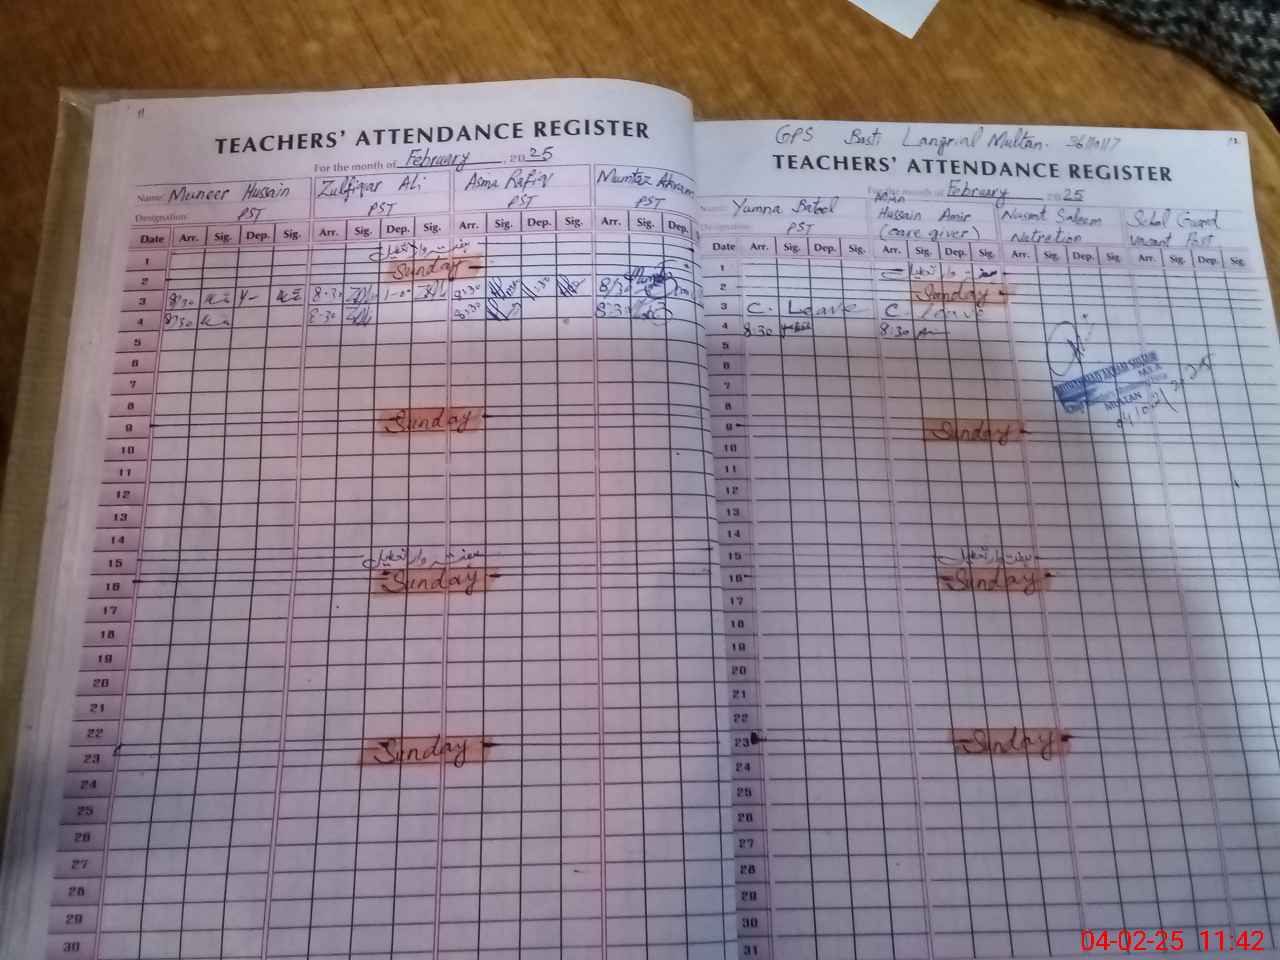 11
TEACHERS' ATTENDANCE REGISTER
For the month of February, 2025
Name Muneer Hussain Zulfiqar Ali Asma Rafiq Mumtaz Akram
Designation PST PST PST PST
Date Arr. Sig. Dep. Sig. Arr. Sig. Dep. Sig. Arr. Sig. Dep. Sig. Arr. Sig. Dep.
1
2 Sunday
3 8:30 8:30 8:30 8:30
4 8:30 8:30 8:30 8:30
5
6
7
8
9 Sunday
10
11
12
13
14
15
16 Sunday
17
18
19
20
21
22
23 Sunday
24
25
26
27
28
29
30
12
GPS Basti Langrial Multan.
TEACHERS' ATTENDANCE REGISTER
For the month of February 2025
Yumna Batool Hussain Amir Nusrat Saleem School Guard
PST (care giver) Nutretion vacant Post
Date Arr. Sig. Dep. Sig. Arr. Sig. Dep. Sig. Arr. Sig. Dep. Sig. Arr. Sig. Dep. Sig.
1
2 Sunday
3 C. Leave C. Leave
4 8:30 8:30
5
6
7
8
9 Sunday
10
11
12
13
14
15
16 Sunday
17
18
19
20
21
22
23 Sunday
24
25
26
27
28
29
30
31
MULTAN
04-02-25 11:42